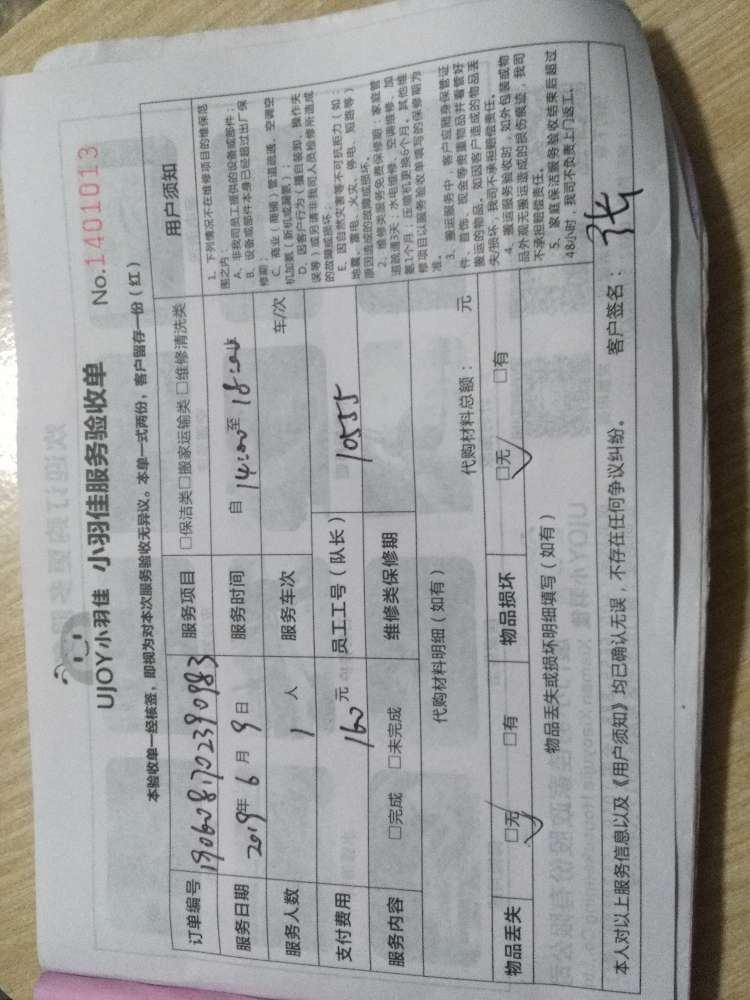 UJOY小羽佳 小羽佳服务验收单 No.1401013
本验收单一经核签，即视为对本次服务验收无异议。本单一式两份，客户留存一份（红）
订单编号 1906081702390983 服务项目 □保洁类□搬家运输类□维修清洗类
服务日期 2019年 6 月 9 日 服务时间 自 14:00至 18:00
服务人数 1 人 服务车次 车/次
支付费用 160 元 员工工号（队长） 10555
服务内容 □完成 □未完成 维修类保修期
代购材料明细（如有） 代购材料总额： 元
物品丢失 □无 □有 物品损坏 □无 □有
物品丢失或损坏明细填写（如有）
用户须知
1、下列情况不在维修项目的维保范
围之内：
A、非我司员工提供的设备或部件；
B、设备或部件本身已经超过出厂保
修期；
C、商业（商铺）管道疏通、空调空
机加氨（新机或漏氨）；
D、因客户行为（擅自装卸、操作失
误等）或另请非我司人员检修所造成
的故障或损坏；
E、因自然灾害等不可抗拒力（如：
地震、雷电、火灾、停电、短路等）
原因造成的故障或损坏。
2、维修类服务免费保修期：家庭管
道疏通3天；水电维修、空调维修、加
氨1个月；压缩机更换6个月。其他维
修项目以服务验收单填写的保修期为
准。
3、搬运服务中，客户应随身保管证
件、首饰、现金等贵重物品并看管好
搬运的物品。如因客户造成的物品丢
失/损坏，我司不承担赔偿责任。
4、搬运服务验收时，如外包装或物
品外观无搬运造成的损伤痕迹，我司
不承担赔偿责任。
5、家庭保洁服务验收结束后超过
48小时，我司不负责上门返工。
本人对以上服务信息以及《用户须知》均已确认无误，不存在任何争议纠纷。 客户签名： 张